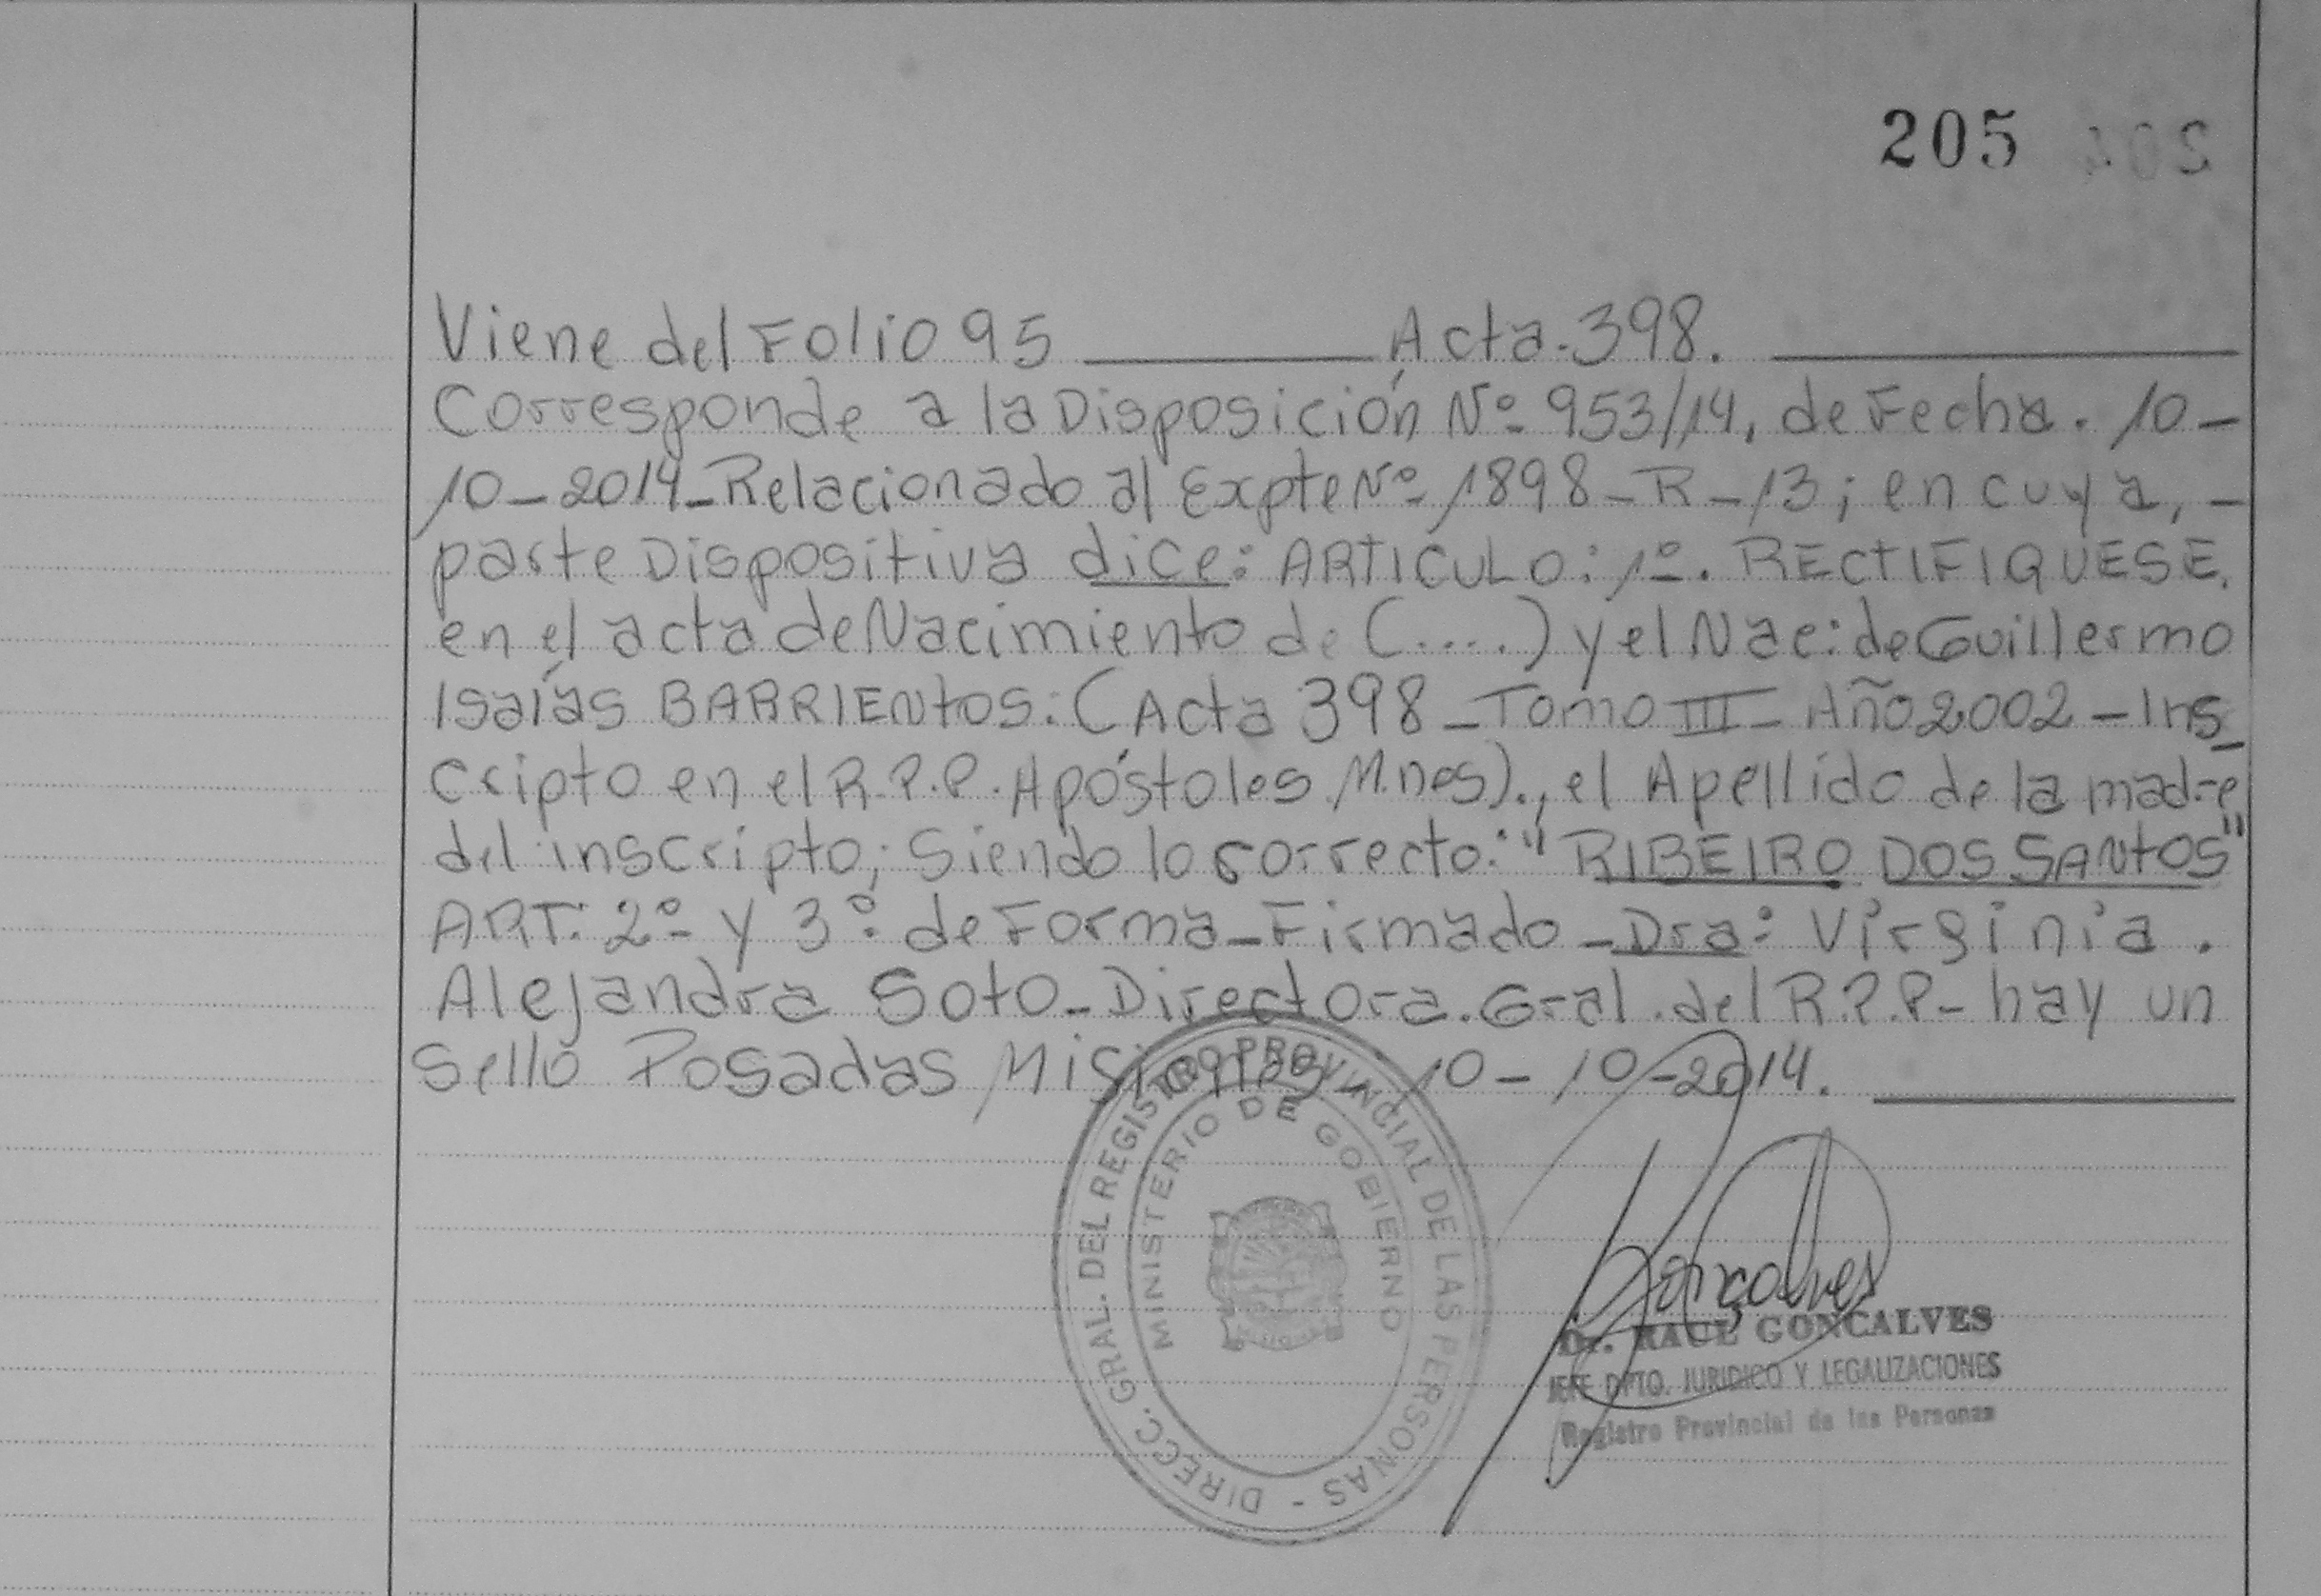 205
Viene del Folio 95 ________ Acta. 398. ________
Corresponde a la Disposición Nº 953/14, de Fecha. 10-
10-2014-Relacionado al Expte Nº 1898-R-13; en cuya, -
parte Dispositiva dice: ARTICULO: 1º. RECTIFIQUESE.
en el acta de Nacimiento de (.....) y el Nac: de Guillermo
Isaías BARRIENtOS: (Acta 398-Tomo III-Año 2002-Ins_
cripto en el R.P.P. Apóstoles M.nes)., el Apellido de la madre
del inscripto; Siendo lo correcto: "RIBEIRO DOS SANtOS"
ART: 2º y 3º de Forma-Firmado-Dra: Virginia.
Alejandra Soto-Directora.Gral.del R.P.P-hay un
Sello Posadas Misiones - 10-10-2014. ________
DIRECC. GRAL. DEL REGISTRO PROVINCIAL DE LAS PERSONAS -
MINISTERIO DE GOBIERNO
Gonçalves
Dr. RAUL GONCALVES
JEFE DPTO. JURIDICO Y LEGALIZACIONES
Registro Provincial de las Personas